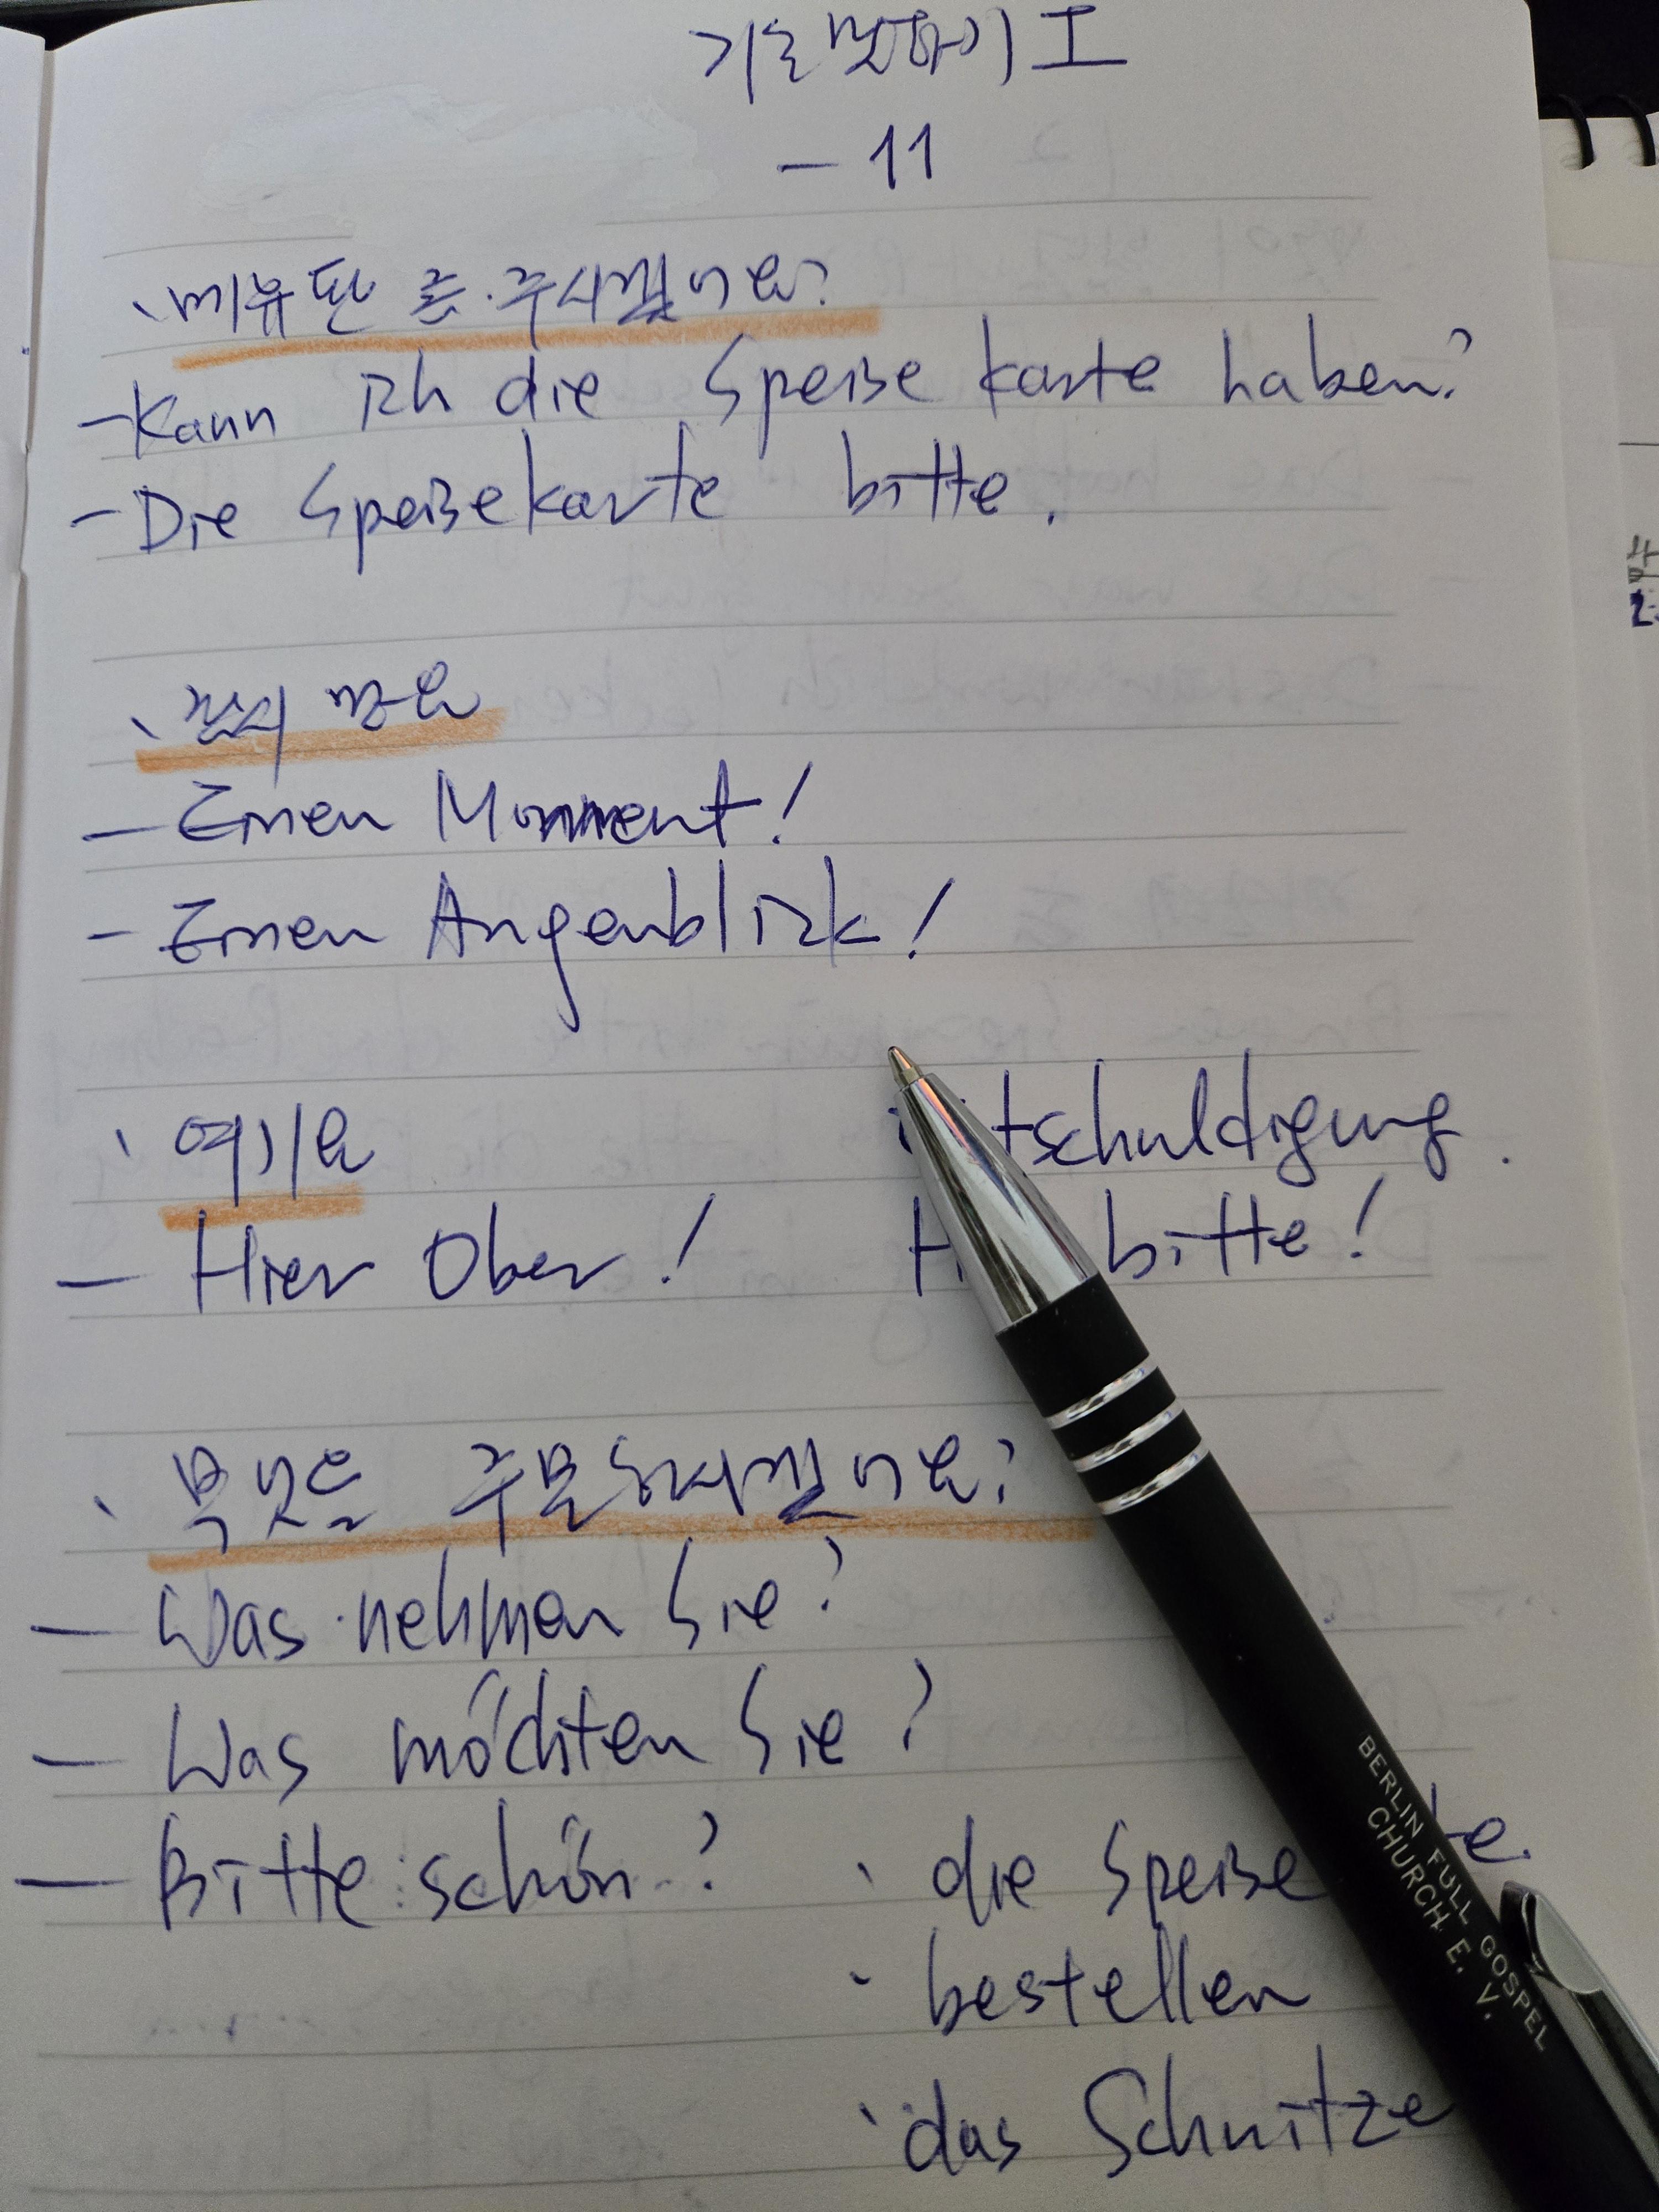 - 11
메뉴판 좀 주시겠어요?
- Kann ich die Speise karte haben?
- Die Speisekarte bitte.
잠시 만요
- Einen Moment!
- Einen Augenblick!
여기요
tschuldigung.
- Hier Ober! H bitte!
무엇을 주문하시겠어요?
- Was nehmen Sie?
- Was möchten Sie?
- Bitte schön? die Speise te.
bestellen
das Schnitze
BERLIN FULL GOSPEL
CHURCH E. V.